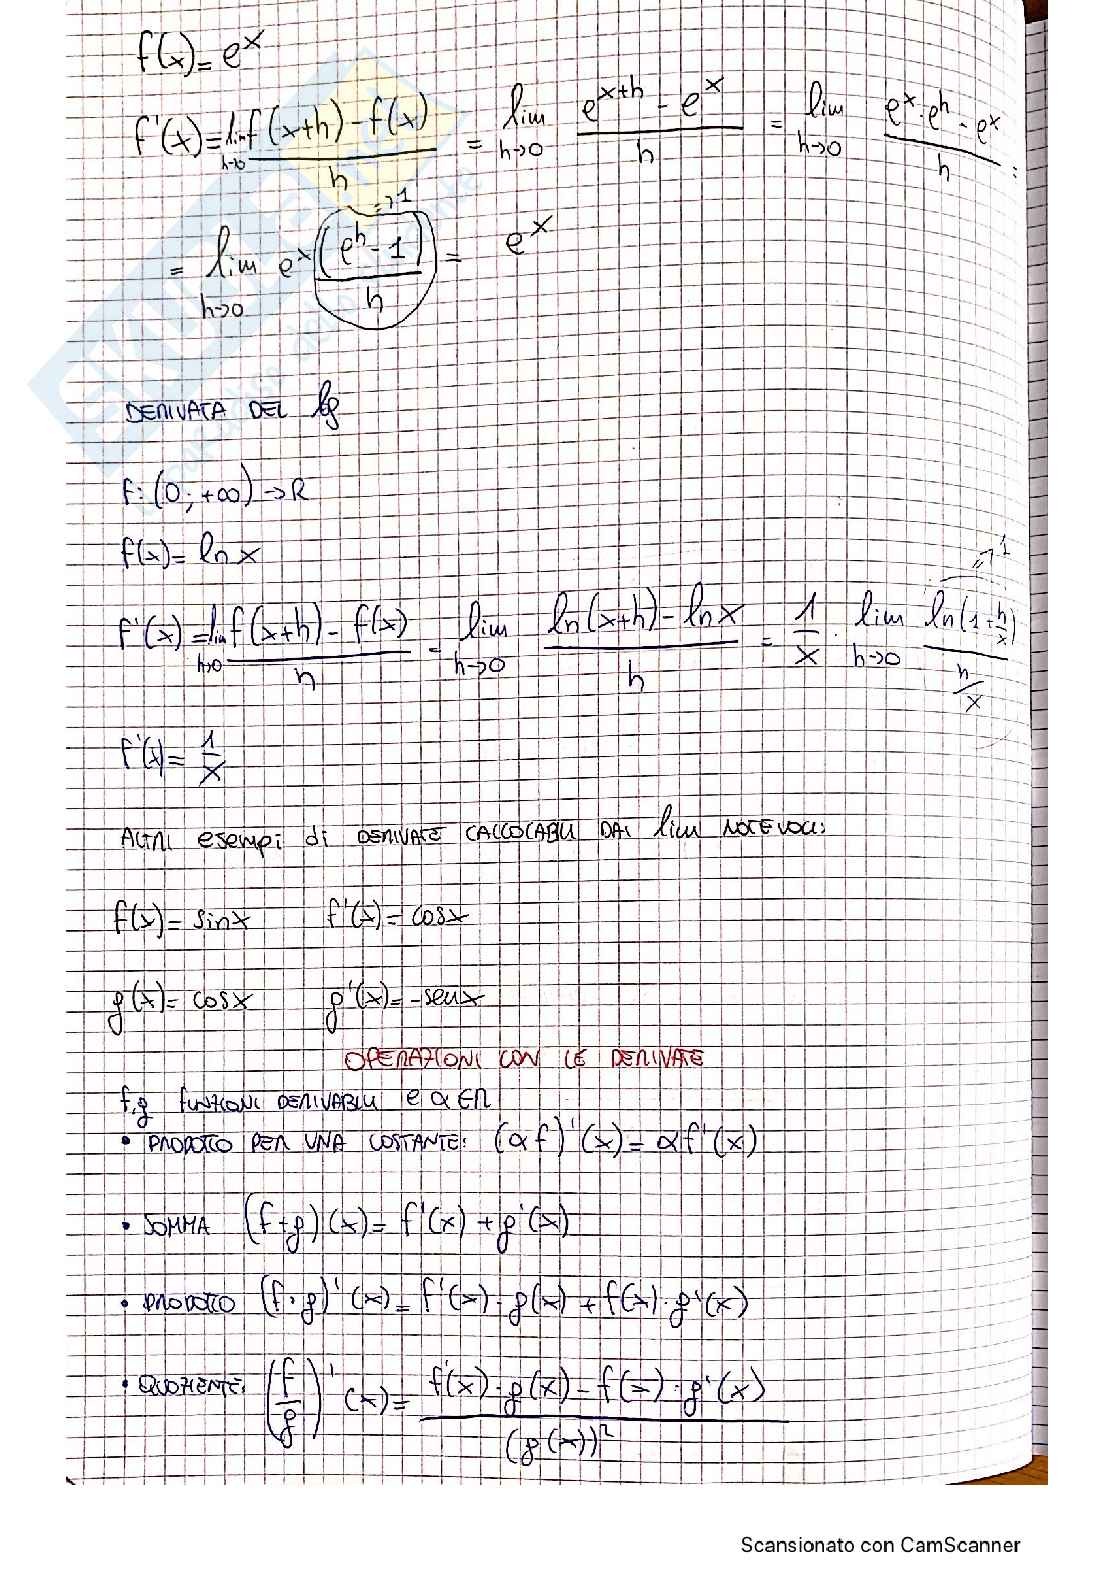 f(x) = e^x
f'(x) = lim h→0 (f(x+h) - f(x))/h = lim h→0 (e^(x+h) - e^x)/h = lim h→0 (e^x · e^h - e^x)/h =
= lim h→0 e^x (e^h - 1)/h → 1 = e^x
DERIVATA DEL lg
f: (0; +∞) → R
f(x) = ln x
f'(x) = lim h→0 (f(x+h) - f(x))/h = lim h→0 (ln(x+h) - ln x)/h = 1/x · lim h→0 ln(1+h/x)/(h/x) → 1
f'(x) = 1/x
ALTRI esempi di DERIVATE CALCOLABILI DAI lim NOTEVOLI:
f(x) = sinx f'(x) = cosx
g(x) = cosx g'(x) = -senx
OPERAZIONI CON LE DERIVATE
f,g FUNZIONI DERIVABILI e α∈R
• PRODOTTO PER UNA COSTANTE: (αf)'(x) = αf'(x)
• SOMMA (f+g)(x) = f'(x) + g'(x)
• PRODOTTO (f·g)'(x) = f'(x)·g(x) + f(x)·g'(x)
• QUOZIENTE: (f/g)'(x) = (f'(x)·g(x) - f(x)·g'(x))/(g(x))²
Scansionato con CamScanner